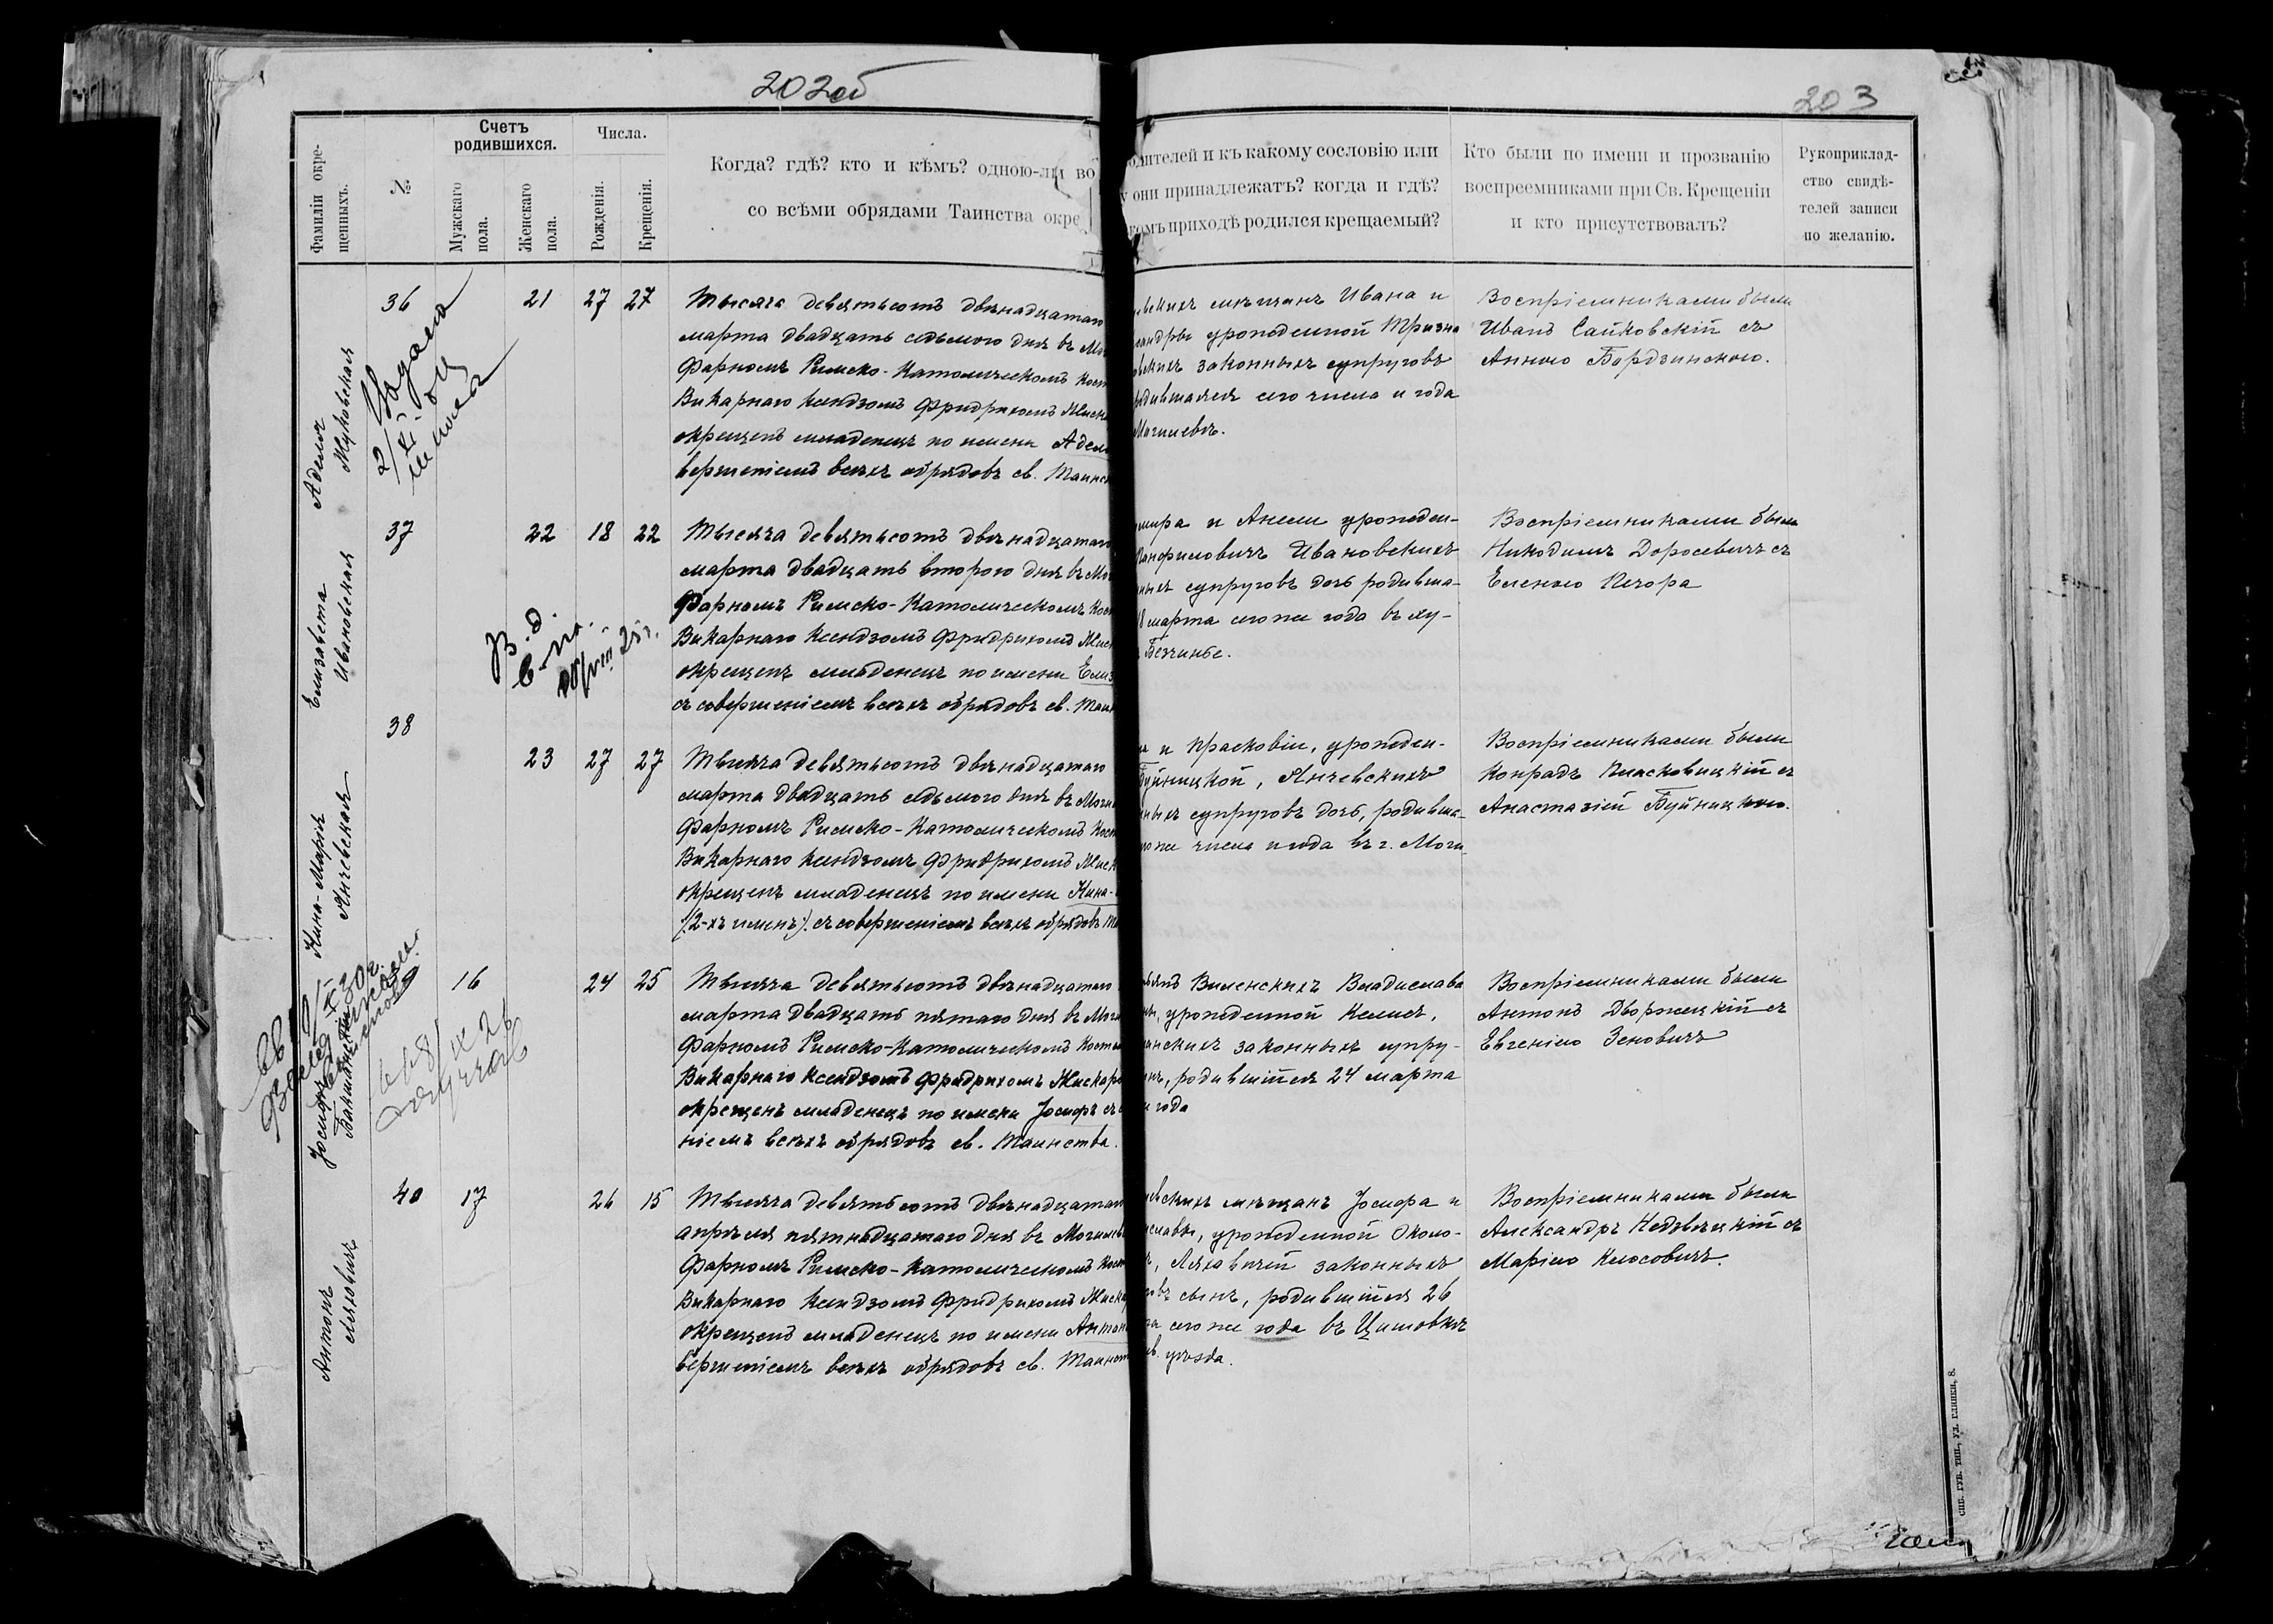 202об
203
Фамиліи окре-
щенныхъ.
№
Счетъ
родившихся.
Мужскаго
пола.
Женскаго
пола.
Числа.
Рожденія.
Крещенія.
Когда? гдѣ? кто и кѣмъ? одною-ли во
со всѣми обрядами Таинства окре
одителей и къ какому сословію или
у они принадлежатъ? когда и гдѣ?
комъ приходѣ родился крещаемый?
Кто были по имени и прозванію
воспреемниками при Св. Крещеніи
и кто присутствовалъ?
Рукоприклад-
ство свидѣ-
телей записи
по желанію.
Аделя
Жуковская
36
21
27
27
Тысяча девятьсотъ двѣнадцатаго
марта двадцать седьмого дня въ Мог
Фарномъ Римско-Католическомъ Кост
Викарнаго Ксендзомъ Фридрихомъ
окрещенъ младенецъ по имени Адел
вершеніемъ всѣхъ обрядовъ св. Таинс
евскихъ мѣщанъ Ивана и
сандры урожденной Тризна
овскихъ законныхъ супруговъ
родившаяся сего числа и года
Могилевѣ.
Воспріемниками были
Иванъ Сайковскій съ
Анною Бордзинскою.
Елизавета
Ивановская
37
22
18
22
Тысяча девятьсотъ двѣнадцатаго
марта двадцать второго дня въ Мог
Фарномъ Римско-Католическомъ Кост
Викарнаго Ксендзомъ Фридрихомъ
окрещенъ младенецъ по имени Елиз
съ совершеніемъ всѣхъ обрядовъ св. Таин
мира и Анели урожден-
Панфиловичъ Ивановскихъ
ныхъ супруговъ дочь родивша-
18 марта сего же года въ ху-
Безчинье.
Воспріемниками были
Никодимъ Доросевичъ съ
Еленою Печора
Нина-Марія
Янчевская
38
23
27
27
Тысяча девятьсотъ двѣнадцатаго
марта двадцать седьмого дня въ Моги
Фарномъ Римско-Католическомъ Кост
Викарнаго Ксендзомъ Фридрихомъ
окрещенъ младенецъ по имени Нина-
(2-хъ именъ) съ совершеніемъ всѣхъ обрядовъ Та
и Прасковіи, урожден-
Буйницкой, Янчевскихъ
ныхъ супруговъ дочь, родивша-
оже числа и года въ г. Моги
Воспріемниками были
Конрадъ Пясковицкій съ
Анастазіей Буйницкою.
Іосифъ
16
24
25
Тысяча девятьсотъ двѣнадцатаго
марта двадцать пятаго дня въ Моги
Фарномъ Римско-Католическомъ Костел
Викарнаго Ксендзомъ Фридрихомъ
окрещенъ младенецъ по имени Іосифъ съ
ніемъ всѣхъ обрядовъ св. Таинства.
Виленскихъ Владислава
ны, урожденной
законныхъ супру-
ынъ, родившійся 24 марта
и года
Воспріемниками были
Антонъ Дворжецкій съ
Евгеніею Зеновичъ
Антонъ
Ляховичъ
40
17
26
15
Тысяча девятьсотъ двѣнадцатаго
апрѣля пятнадцатаго дня въ Могилев
Фарномъ Римско-Католическомъ Кост
Викарнаго Ксендзомъ Фридрихомъ
окрещенъ младенецъ по имени Антон
вершеніемъ всѣхъ обрядовъ св. Таинст
евскихъ мѣщанъ Іосифа и
иславы, урожденной Около-
ъ, Ляховичей законныхъ
овъ сынъ, родившійся 26
та сего же года въ Цишовкѣ
ев. уѣзда.
Воспріемниками были
Александръ Недзвецкій съ
Маріею Клосовичъ.
СПБ. ГУБ. ТИП., УЛ. ГЛИНКИ, 8.